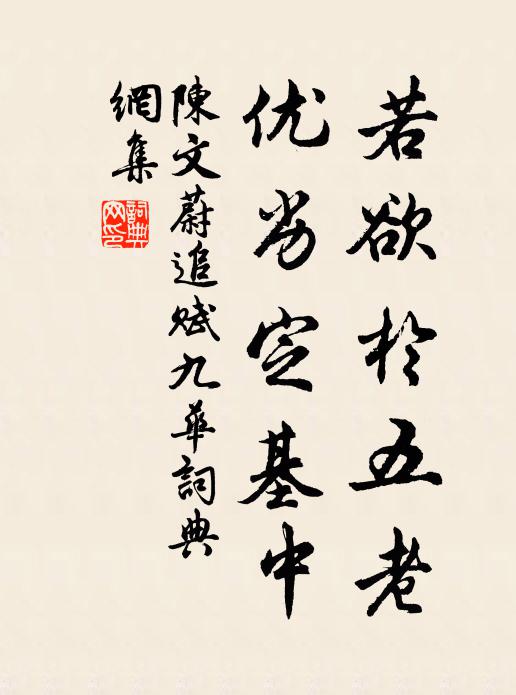 若欲於五老
优劣定基中
陳文蔚追赋九華詞典
網集
詞典
网印